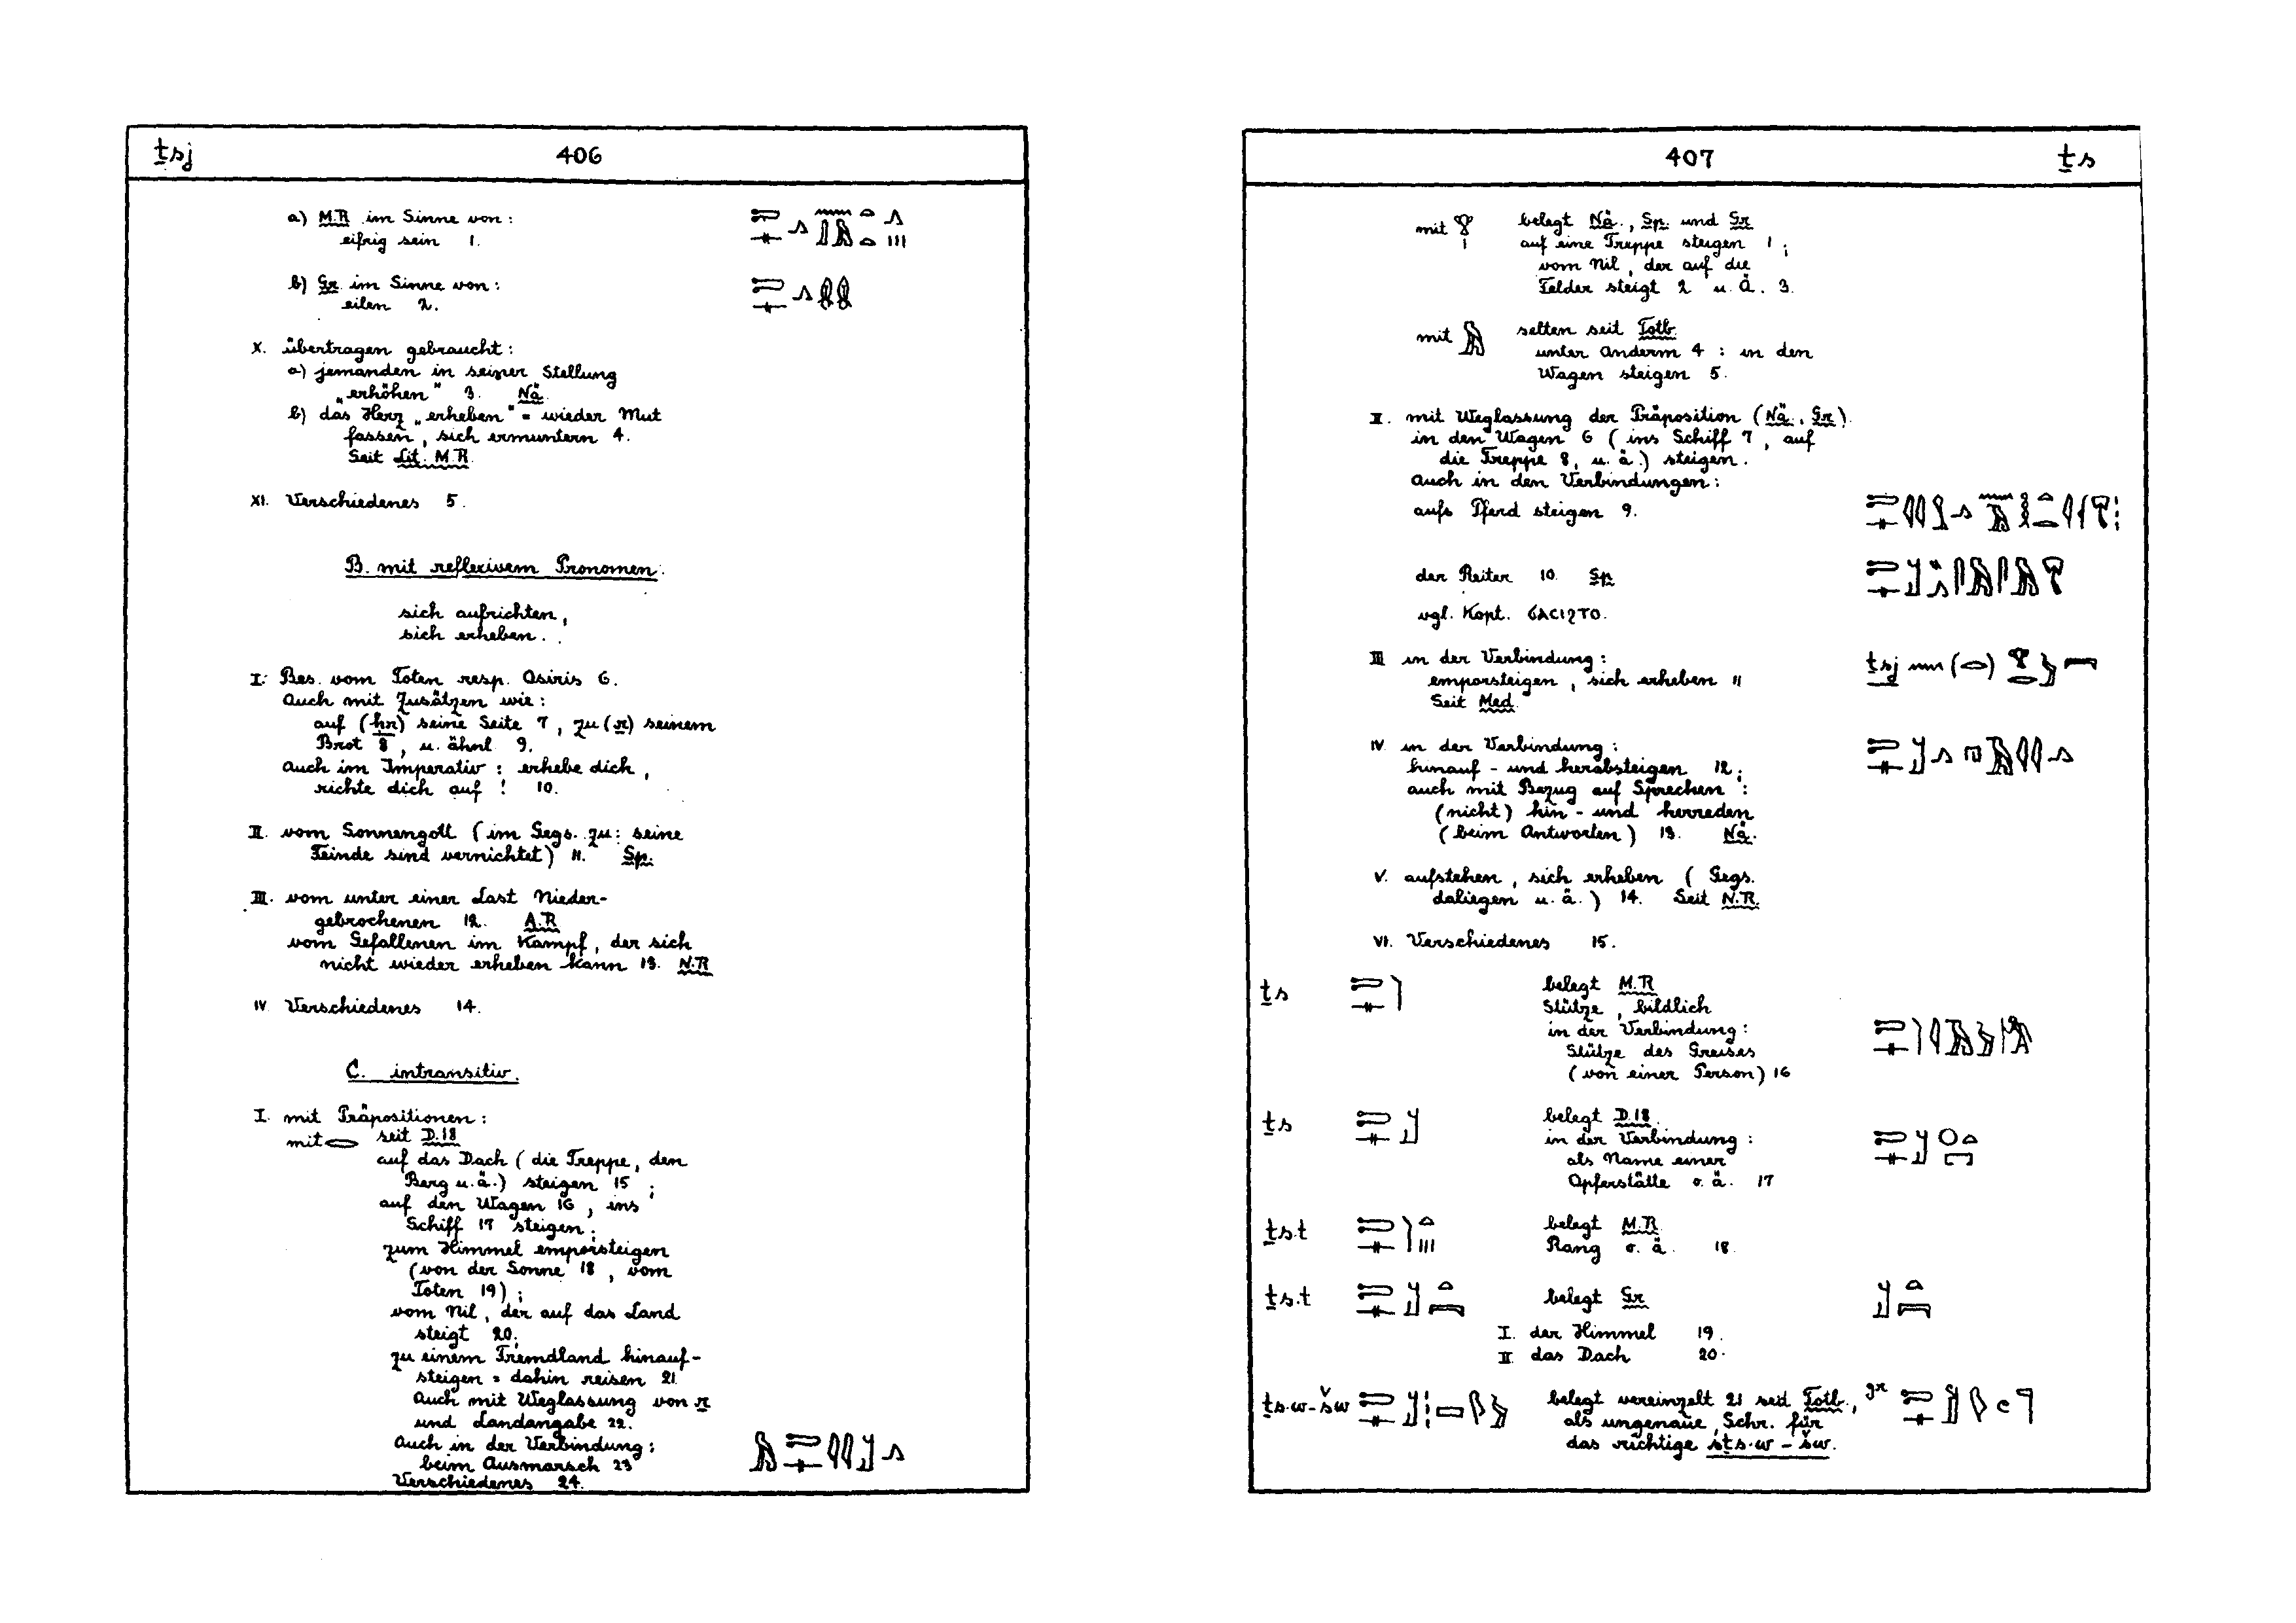 ṯsj 406
a) M.R im Sinne von:
eifrig sein 1.
b) Gr im Sinne von:
eilen 2.
X. übertragen gebraucht:
a) jemanden in seiner Stellung
„erhöhen" 3. Nä.
b) das Herz „erheben" = wieder Mut
fassen, sich ermuntern 4.
Seit Lit. M.R.
XI. Verschiedenes 5.
B. mit reflexivem Pronomen.
sich aufrichten,
sich erheben.
I. Bes. vom Toten resp. Osiris 6.
Auch mit Zusätzen wie:
auf (ḥr) seine Seite 7, zu (r) seinem
Brot 8, u. ähnl 9.
Auch im Imperativ: erhebe dich,
richte dich auf! 10.
II. vom Sonnengott (im Gegs. zu: seine
Feinde sind vernichtet) 11. Sp.
III. vom unter einer Last Nieder-
gebrochenen 12. A.R
vom Gefallenen im Kampf, der sich
nicht wieder erheben kann 13. N.R
IV. Verschiedenes 14.
C. intransitiv.
I. mit Präpositionen:
mit 𓂋 seit D.18
auf das Dach (die Treppe, den
Berg u.ä.) steigen 15;
auf den Wagen 16, ins
Schiff 17 steigen;
zum Himmel emporsteigen
(von der Sonne 18, vom
Toten 19);
vom Nil, der auf das Land
steigt 20;
zu einem Fremdland hinauf-
steigen = dahin reisen 21.
Auch mit Weglassung von r
und Landangabe 22.
Auch in der Verbindung:
beim Ausmarsch 23
Verschiedenes 24.
407 ṯs
mit 𓁷 belegt Nä., Sp. und Gr
auf eine Treppe steigen 1;
vom Nil, der auf die
Felder steigt 2 u. Ä. 3.
mit 𓅓 selten seit Totb.
unter Anderm 4: in den
Wagen steigen 5.
II. mit Weglassung der Präposition (Nä., Gr).
in den Wagen 6 (ins Schiff 7, auf
die Treppe 8, u. ä.) steigen.
Auch in den Verbindungen:
aufs Pferd steigen 9.
der Reiter 10. Sp
vgl. Kopt. ϭⲁⲥⲓϩⲧⲟ.
III in der Verbindung: ṯsj
emporsteigen, sich erheben 11
Seit Med.
IV. in der Verbindung:
hinauf- und herabsteigen 12;
auch mit Bezug auf Sprechen:
(nicht) hin- und herreden
(beim Antworten) 13. Nä.
V. aufstehen, sich erheben (Gegs.
daliegen u. ä.) 14. Seit N.R.
VI. Verschiedenes 15.
ṯs belegt M.R
Stütze, bildlich
in der Verbindung:
Stütze des Greises
(von einer Person) 16
ṯs belegt D.18.
in der Verbindung:
als Name einer
Opferstätte o. ä. 17
ṯs.t belegt M.R.
Rang o. ä. 18.
ṯs.t belegt Gr
I. der Himmel 19.
II. das Dach 20.
ṯs.w-šw belegt vereinzelt 21 seit Totb., gr
als ungenaue Schr. für
das richtige sṯs.w-šw.